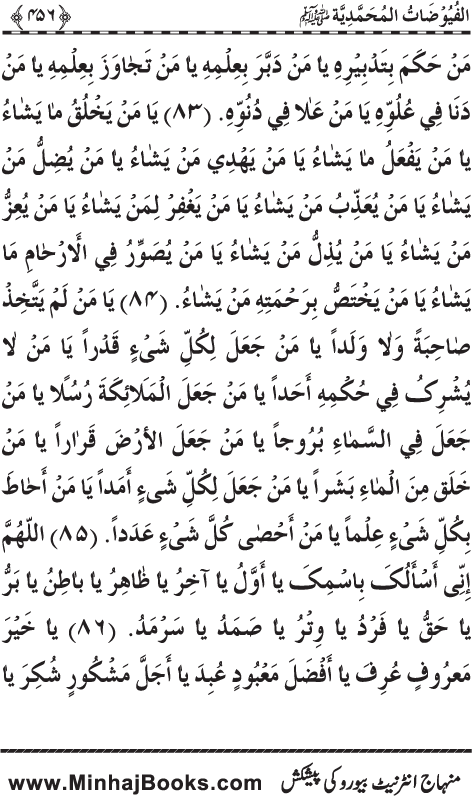 الفُيُوْضَاتُ المُحَمَّدِيَّة ﷺ ﴿۴۵۶﴾
مَنْ حَكَمَ بِتَدْبِيْرِهِ يا مَنْ دَبَّرَ بِعِلْمِهِ يا مَنْ تَجَاوَزَ بِعِلْمِهِ يا مَنْ
دَنَا فِي عُلُوِّهِ يَا مَنْ عَلَا فِي دُنُوِّهِ. (۸۳) يَا مَنْ يَخْلُقُ مَا يَشَاءُ
يا مَنْ يَفْعَلُ مَا يَشَاءُ يَا مَنْ يَهْدِي مَنْ يَشَاءُ يا مَنْ يُضِلُّ مَنْ
يَشَاءُ يَا مَنْ يُعَذِّبُ مَنْ يَشَاءُ يَا مَنْ يَغْفِرُ لِمَنْ يَشَاءُ يَا مَنْ يُعِزُّ
مَنْ يَشَاءُ يَا مَنْ يُذِلُّ مَنْ يَشَاءُ يَا مَنْ يُصَوِّرُ فِي الْأَرْحَامِ مَا
يَشَاءُ يَا مَنْ يَخْتَصُّ بِرَحْمَتِهِ مَنْ يَشَاءُ. (۸۴) يَا مَنْ لَمْ يَتَّخِذْ
صَاحِبَةً وَلَا وَلَداً يا مَنْ جَعَلَ لِكُلِّ شَيْءٍ قَدْراً يَا مَنْ لَا
يُشْرِكُ فِي حُكْمِهِ أَحَداً يا مَنْ جَعَلَ الْمَلَائِكَةَ رُسُلًا يا مَنْ
جَعَلَ فِي السَّمَاءِ بُرُوجاً يا مَنْ جَعَلَ الأَرْضَ قَرَاراً يا مَنْ
خَلَقَ مِنَ الْمَاءِ بَشَراً يا مَنْ جَعَلَ لِكُلِّ شَيءٍ أَمَداً يَا مَنْ أَحَاطَ
بِكُلِّ شَيْءٍ عِلْماً يا مَنْ أَحْصٰى كُلَّ شَيْءٍ عَدَداً. (۸۵) اللّٰهُمَّ
إِنِّى أَسْأَلُكَ بِاسْمِكَ يا أَوَّلُ يا آخِرُ يا ظَاهِرُ يا باطِنُ يا بَرُّ
يا حَقُّ يا فَرْدُ يا وِتْرُ يا صَمَدُ يا سَرْمَدُ. (۸۶) يا خَيْرَ
مَعرُوفٍ عُرِفَ يا أَفْضَلَ مَعْبُودٍ عُبِدَ يا أَجَلَّ مَشْكُورٍ شُكِرَ يا
منہاج انٹرنیٹ بیورو کی پیشکش www.MinhajBooks.com